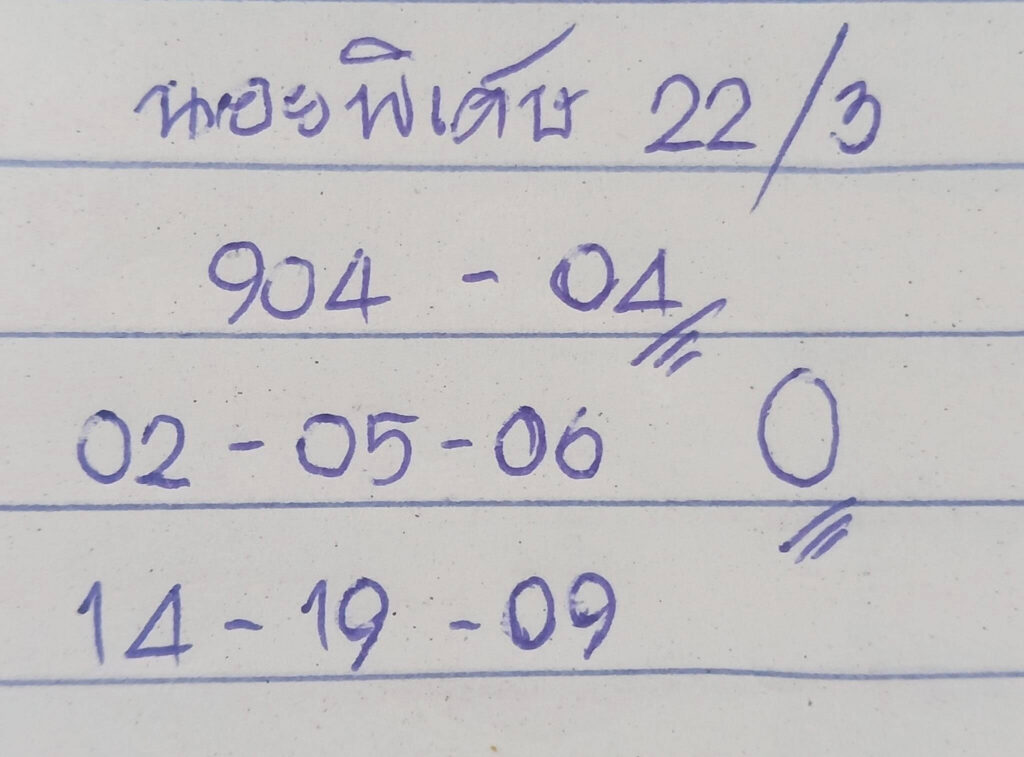 นอยพิเศษ 22/3
904 - 04
02 - 05 - 06 0
14 - 19 - 09